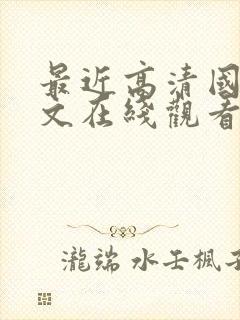 最近高清國
文在綫觀看
瀧端 水壬楓子